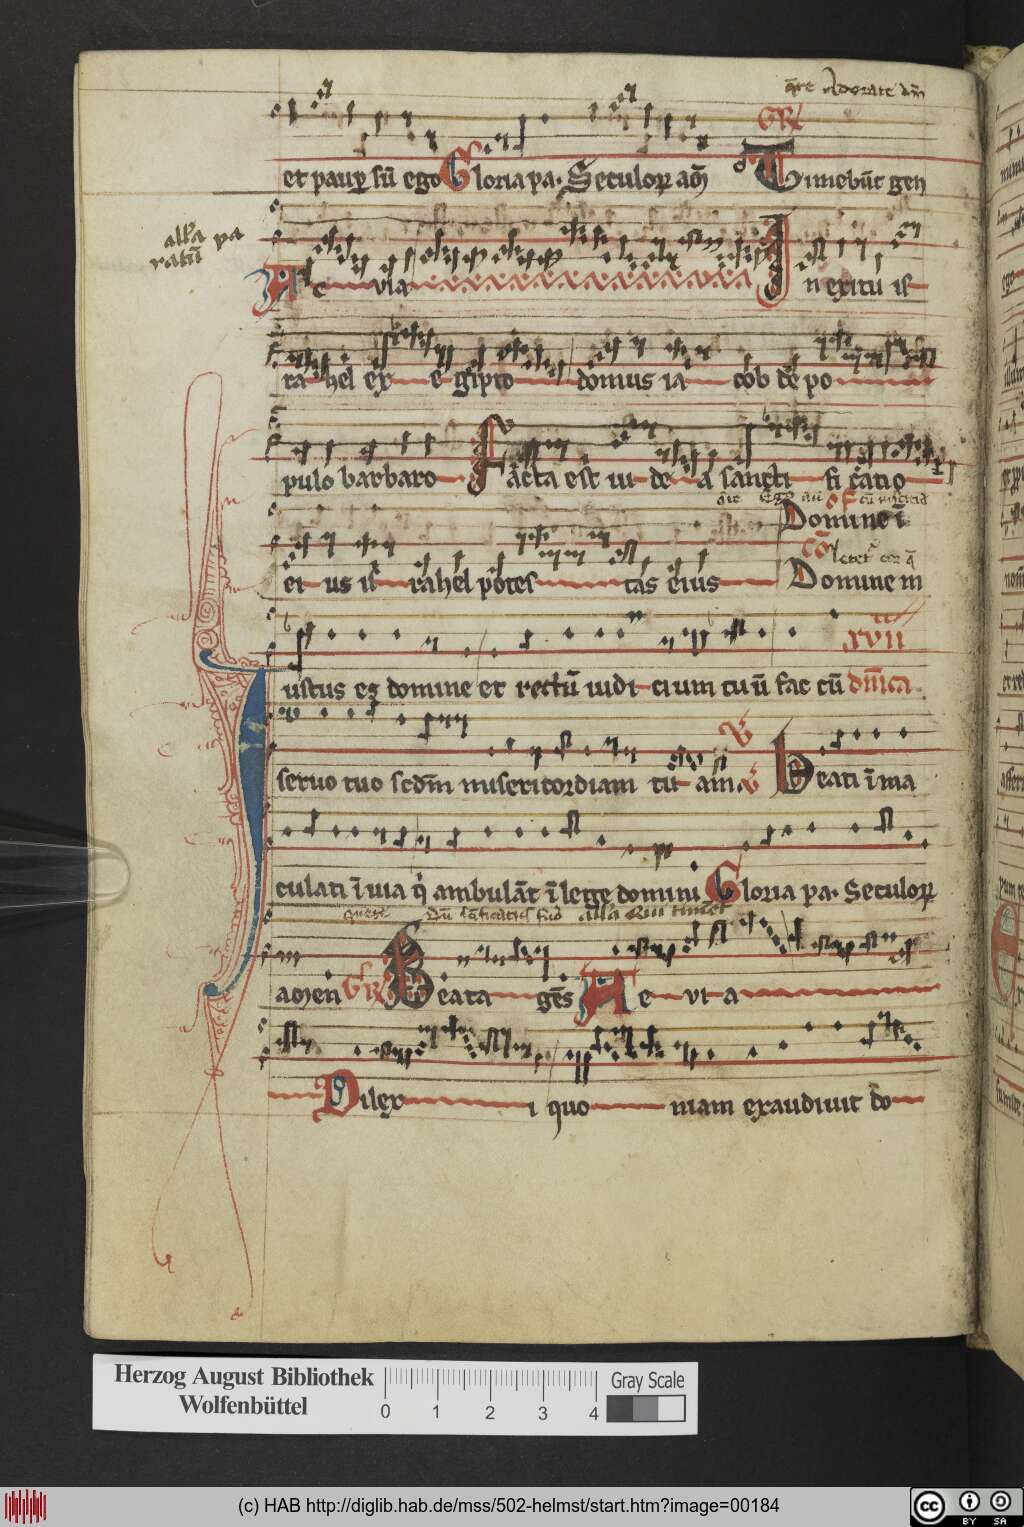 et paup̄ sū ego Gloria pa. Seculoꝝ am̄ GR Timebūt gen
alla pa
ratū
Ae via In exitu isr
rahel ex e gipto domus ia cob de po
pulo barbaro Facta est iu de a sancti fi catio
Domine ī
ei us isr rahel potes tas eius CO Domine in
xvii
ustus es domine et rectū iudi cium tuū fac cū dn̄ica
seruo tuo scdm̄ misericordiam tu am Beati īma
culati ī via q̄ ambulāt ī lege domini Gloria pa. Seculoꝝ
alla Qui timet
amen GR Beata gēs Ae vi a
Dilex i quo niam exaudiuit do
Herzog August Bibliothek
Wolfenbüttel
0 1 2 3 4
Gray Scale
(c) HAB http://diglib.hab.de/mss/502-helmst/start.htm?image=00184
cc BY SA